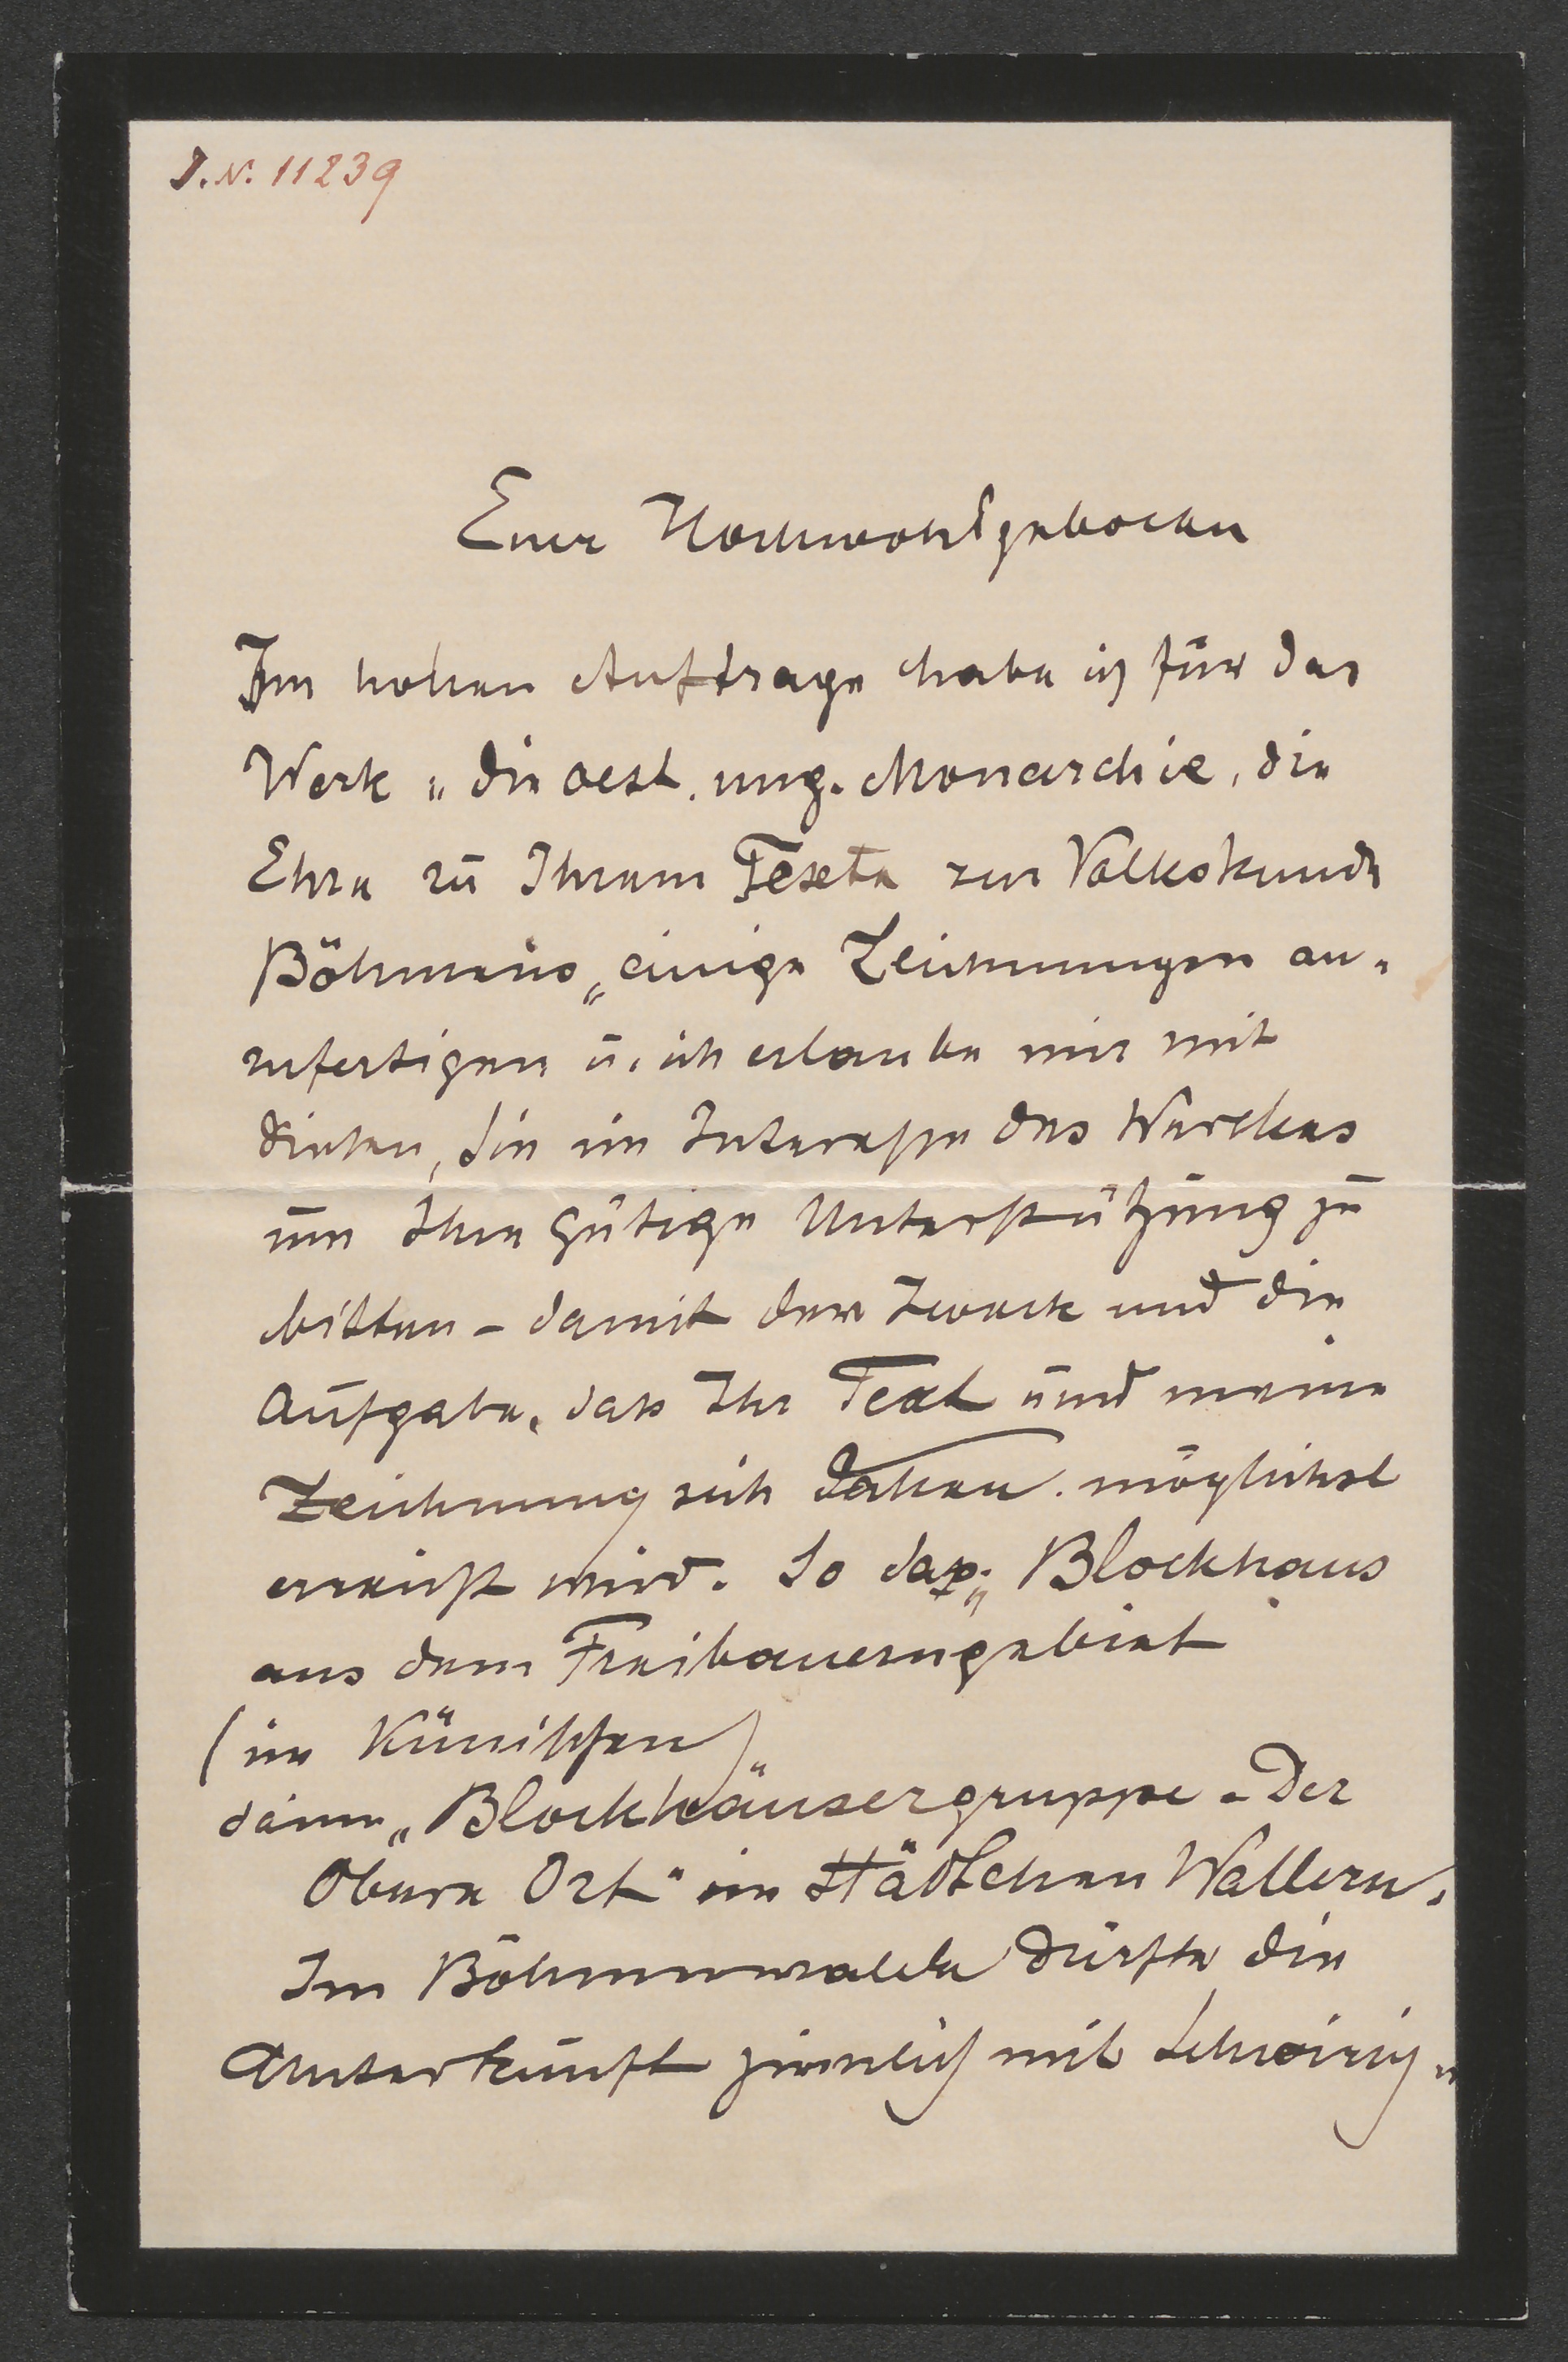 J. N. 11239
Euer Hochwohlgeboren
Im hohen Auftrage habe ich für das
Werk „die oest. ung. Monarchie, die
Ehre zu Ihrem Texte zur Volkskunde
Böhmens„ einige Zeichnungen an-
zufertigen u. ich erlaube mir mit
diesen, Sie im Interesse des Werckes
um Ihre gütige Unterstützung zu
bitten – damit der Zweck und die
Aufgabe, dass Ihr Text und meine
Zeichnung sich decken möglichst
erreicht wird. So daß „Blockhaus
aus dem Freibauerngebiet
(im Künischen)“
dann „Blockhäusergruppe – Der
Obere Ort“ im Städtchen Wallern.
Im Böhmerwalde dürfte die
Unterkunft ziemlich mit Schwierig-